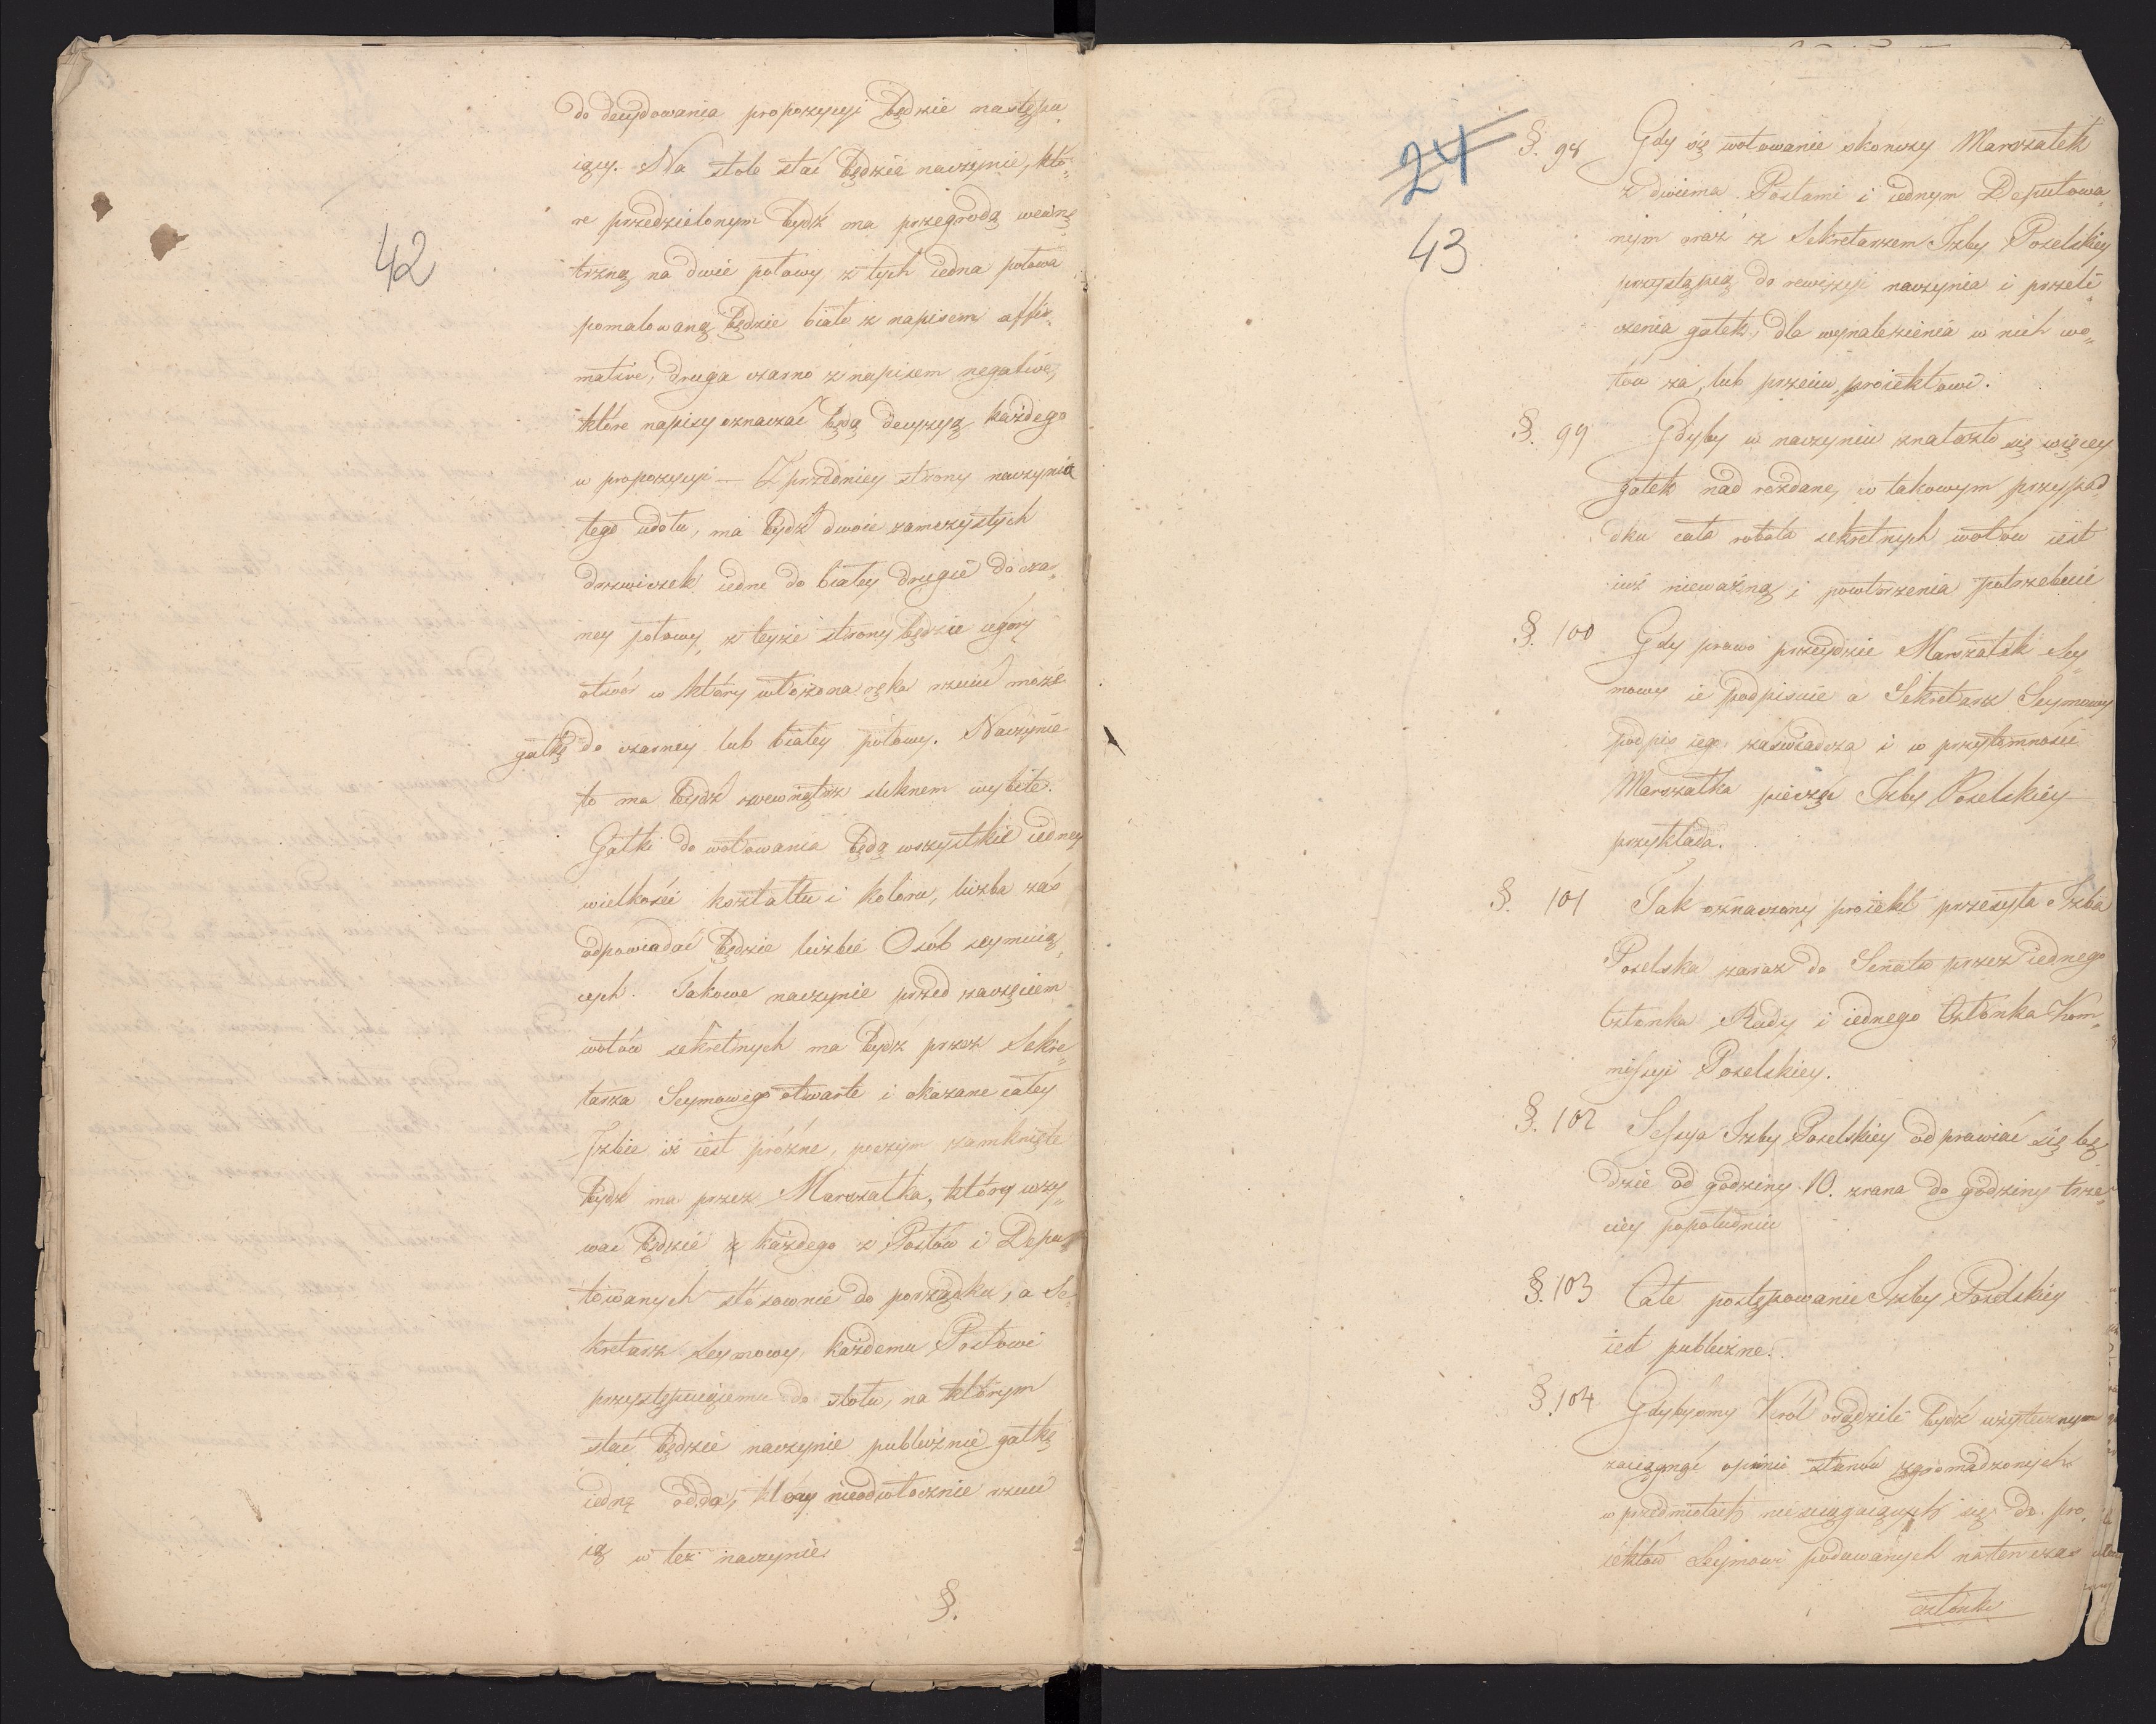 42
do decydowania propozycyi będzie następu„
iący. Na stole stać będzie naczynie, któ„
re przedzielonym bydź ma przegrodą wewnę„
trzną na dwie połowy z tych iedna połowa
pomalowaną będzie biało z napisem affir„
mative, druga czarno z napisem negative,
które napisy oznaczać będą decyzyą każdego
w propozycyi — Z przedniey strony naczynia
tego udołu, ma bydź dwoie zamczystych
drzwiczek iedne do białey drugie do cza„
ney połowy, z teyże strony będzie ugóry
otwór w który włożona ręka rzucić może
gałkę do czarney lub białey połowy. Naczynie
to ma bydź zwewnątrz suknem wybite.
Gałki do wotowania będą wszystkie iedney
wielkości kształtu i koloru, liczba zaś
odpowiadać będzie liczbie Osób seymuią„
cych. Takowe naczynie przed zaczęciem
wotów sekretnych ma bydź przez Sekre„
tarza Seymowego otwarte i okazane całey
Izbie iż iest próżne, poczym zamknięte
bydź ma przez Marszałka, który wzy„
wać będzie z każdego z Posłów i Depu„
towanych stósownie do porządku, a Se„
kretarz Seymowy, każdemu Posłowi
przystępuiącemu do stołu, na którym
stać będzie naczynie publicznie gałkę
iedną odda, który nieodwłocznie rzuci
ią w też naczynie.
§.
24
43
§. 98 Gdy się wotowanie skonczy Marszałek
z dwiema Posłami i iednym Deputowa„
nym oraz z Sekretarzem Izby Poselskiey
przystąpią do rewizyi naczynia i przeli„
czenia gałek, dla wynalezienia w nich wo„
tów za, lub przeciw proiektowi.
§. 99 Gdyby w naczyniu znalazło się więcey
gałek nad rozdane, w takowym przypad„
dku cała robota sekretnych wotów iest
iuż nieważną i powtorzenia potrzebuie
§. 100 Gdy prawo przeydzie Marszałek Sey„
mowy ie podpisuie a Sekretarz Seymowy
podpis iego zaświadcza i w przytomności
Marszałka pieczęć Izby Poselskiey
przykłada.
§. 101 Tak oznaczony proiekt przesyła Izba
Poselska zaraz do Senatu przez iednego
Członka Rady i iednego Członka Kom„
missyi Poselskiey.
§. 102 Sessya Izby Poselskiey odprawiać się bę
dzie od godziny 10. zrana do godziny trze„
ciey popołudniu
§. 103 Całe postępowanie Izby Poselskiey
iest publiczne.
§. 104 Gdybyśmy Król osądzili bydź użytecznym
zaciągnąć opinii stanów zgromadzonych
w przedmiotach nieściągaiących się do pro„
iektów Seymowi podawanych natenczas
członki